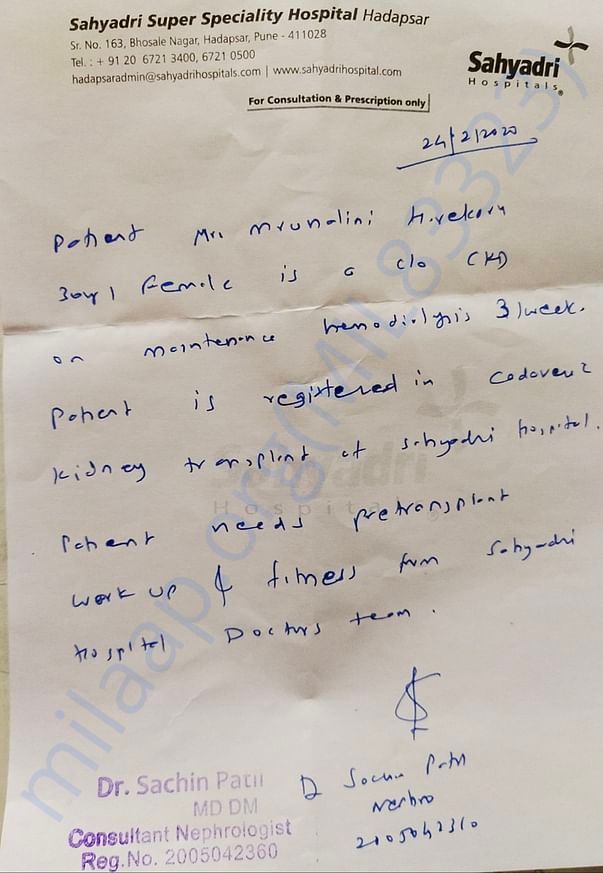 Sahyadri Super Speciality Hospital Hadapsar
Sr. No. 163, Bhosale Nagar, Hadapsar, Pune - 411028
Tel. : + 91 20 6721 3400, 6721 0500
hadapsaradmin@sahyadrihospitals.com | www.sahyadrihospital.com
Sahyadri
Hospitals®
For Consultation & Prescription only
24/2/2020
Patient Mrs Mrunalini
30y1 Female is a c/o CKD
on maintenance hemodialysis 3/week.
Patient is registered in
kidney transplant at Sahyadri hospital.
Patient needs pretransplant
work up & fitness from Sahyadri
Hospital Doctors team.
Sahyadri
Hospital
Dr Sachin Patil
Nephro
Dr. Sachin Patil
MD DM
Consultant Nephrologist
Reg.No. 2005042360
milaap.org(MIL83323)